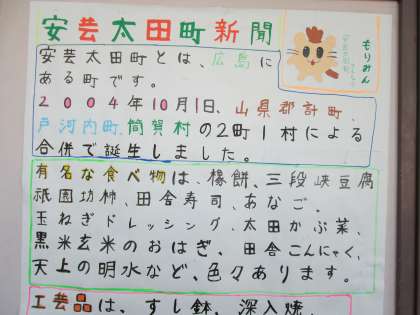 安芸太田町新聞
もりみん
安芸太田町とは、広島に
ある町です。
2004年10月1日、山県郡計町、
戸河内町、筒賀村の2町1村による
合併で誕生しました。
有名な食べ物は、橡餅、三段峡豆腐
祇園坊柿、田舎寿司、あなご、
玉ねぎドレッシング、太田かぶ菜、
黒米玄米のおはぎ、田舎こんにゃく、
天上の明水など、色々あります。
工芸品は、すし鉢、深入焼、